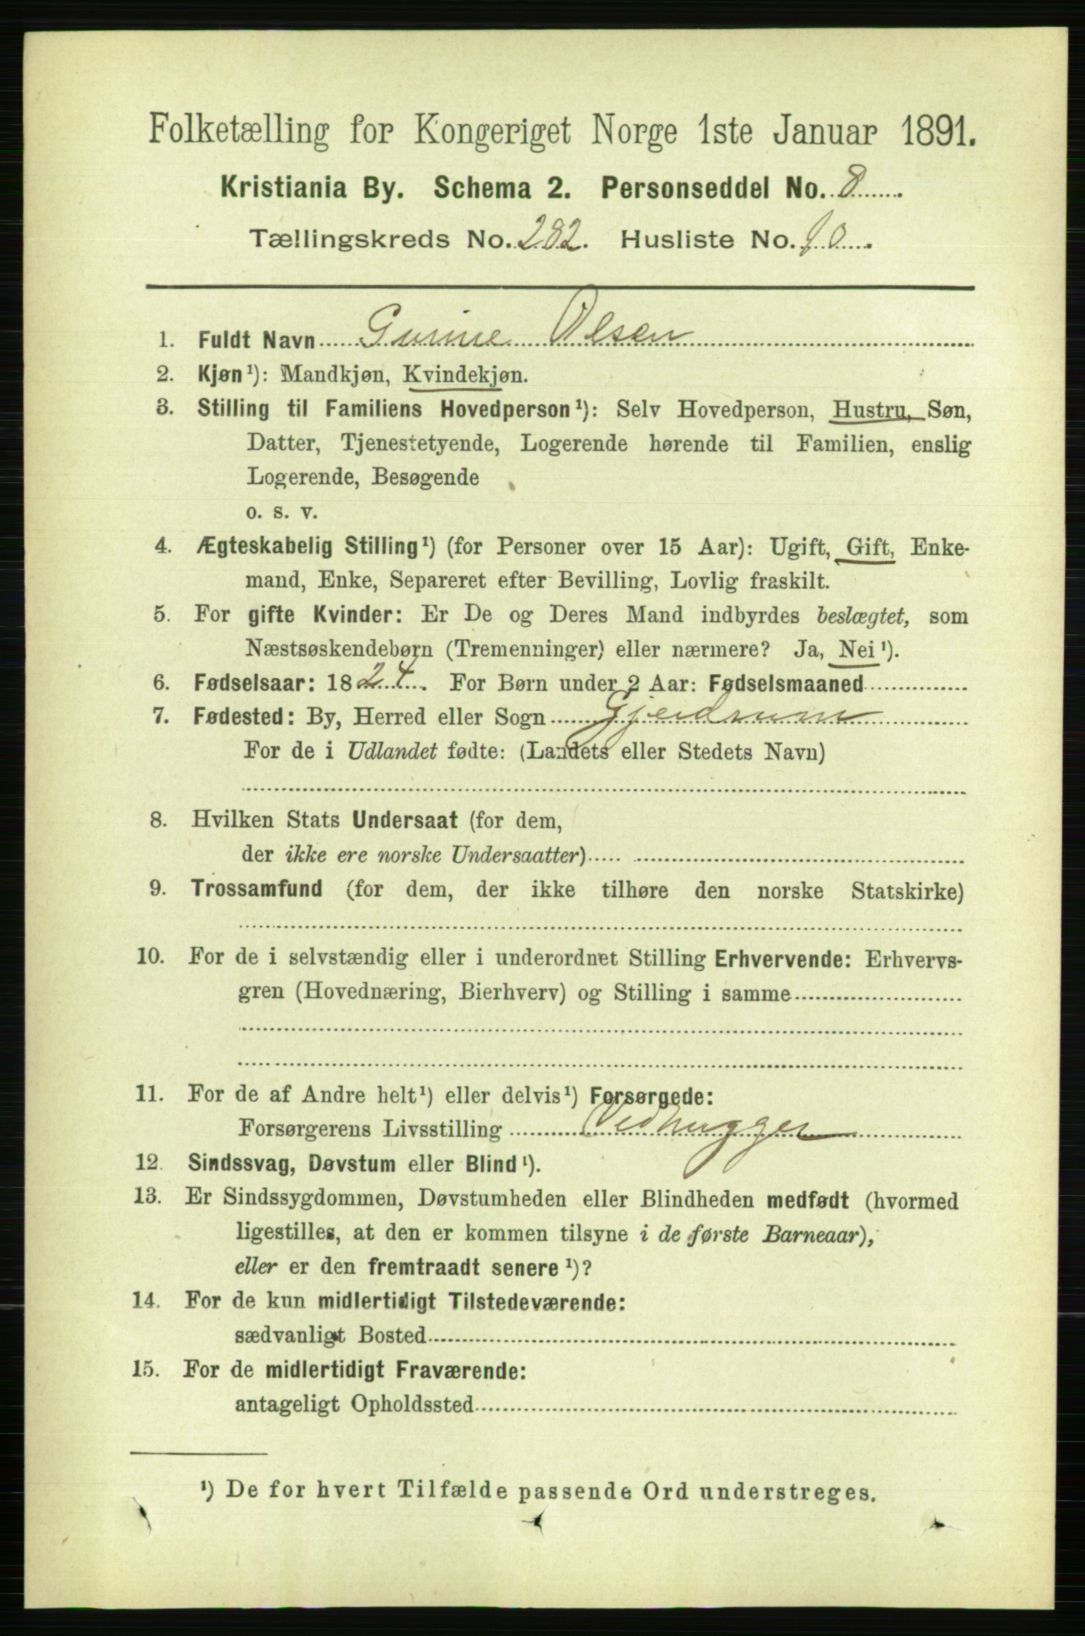 Folketælling for Kongeriget Norge 1ste Januar 1891.
Kristiania By. Schema 2. Personseddel No. 8
Tællingskreds No. 282. Husliste No. 10.
1. Fuldt Navn Gurine Olsen
2. Kjøn¹): Mandkjøn, Kvindekjøn.
3. Stilling til Familiens Hovedperson¹): Selv Hovedperson, Hustru, Søn,
Datter, Tjenestetyende, Logerende hørende til Familien, enslig
Logerende, Besøgende
o. s. v.
4. Ægteskabelig Stilling¹) (for Personer over 15 Aar): Ugift, Gift, Enke-
mand, Enke, Separeret efter Bevilling, Lovlig fraskilt.
5. For gifte Kvinder: Er De og Deres Mand indbyrdes beslægtet, som
Næstsøskendebørn (Tremenninger) eller nærmere? Ja, Nei¹).
6. Fødselsaar: 1824. For Børn under 2 Aar: Fødselsmaaned
7. Fødested: By, Herred eller Sogn Gjerdrum
For de i Udlandet fødte: (Landets eller Stedets Navn)
8. Hvilken Stats Undersaat (for dem,
der ikke ere norske Undersaatter)
9. Trossamfund (for dem, der ikke tilhøre den norske Statskirke)
10. For de i selvstændig eller i underordnet Stilling Erhvervende: Erhvervs-
gren (Hovednæring, Bierhverv) og Stilling i samme
11. For de af Andre helt¹) eller delvis¹) Forsørgede:
Forsørgerens Livsstilling Vedhugger
12. Sindssvag, Døvstum eller Blind¹).
13. Er Sindssygdommen, Døvstumheden eller Blindheden medfødt (hvormed
ligestilles, at den er kommen tilsyne i de første Barneaar),
eller er den fremtraadt senere¹)?
14. For de kun midlertidigt Tilstedeværende:
sædvanligt Bosted
15. For de midlertidigt Fraværende:
antageligt Opholdssted
¹) De for hvert Tilfælde passende Ord understreges.